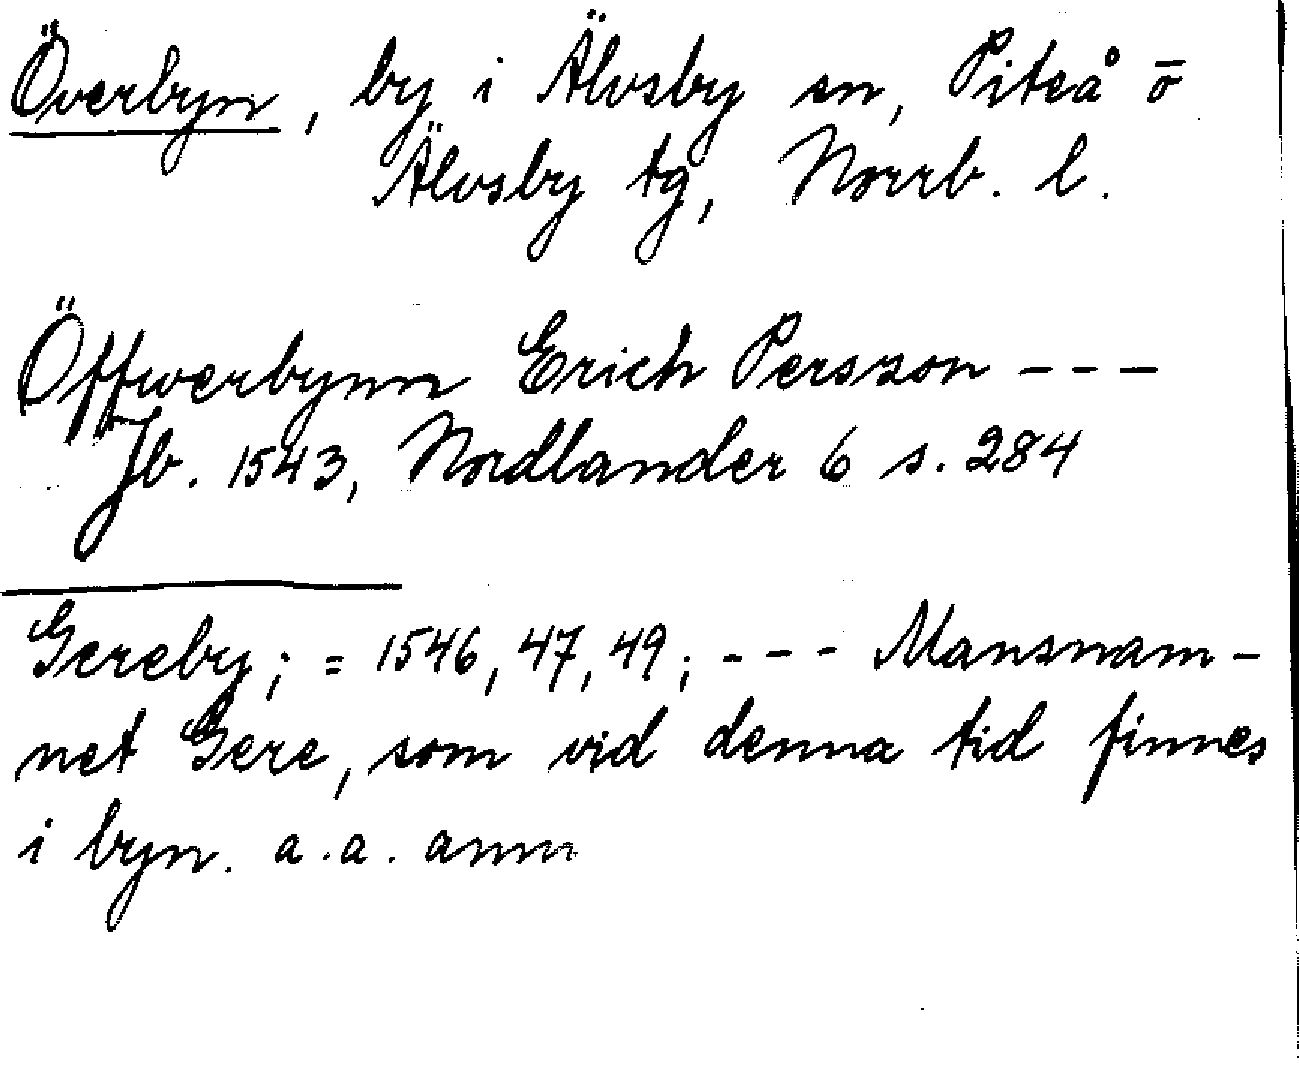 Överbyn, by i Älvsby sn, Piteå o
Älvsby tg, Norrb. l.
Öffwerbynn Erich Persson ---
Jb. 1543, Nordlander 6 s. 284
Gereby; = 1546, 47, 49; --- Mansnam-
net Gere, som vid denna tid finnes
i byn. a.a. anm